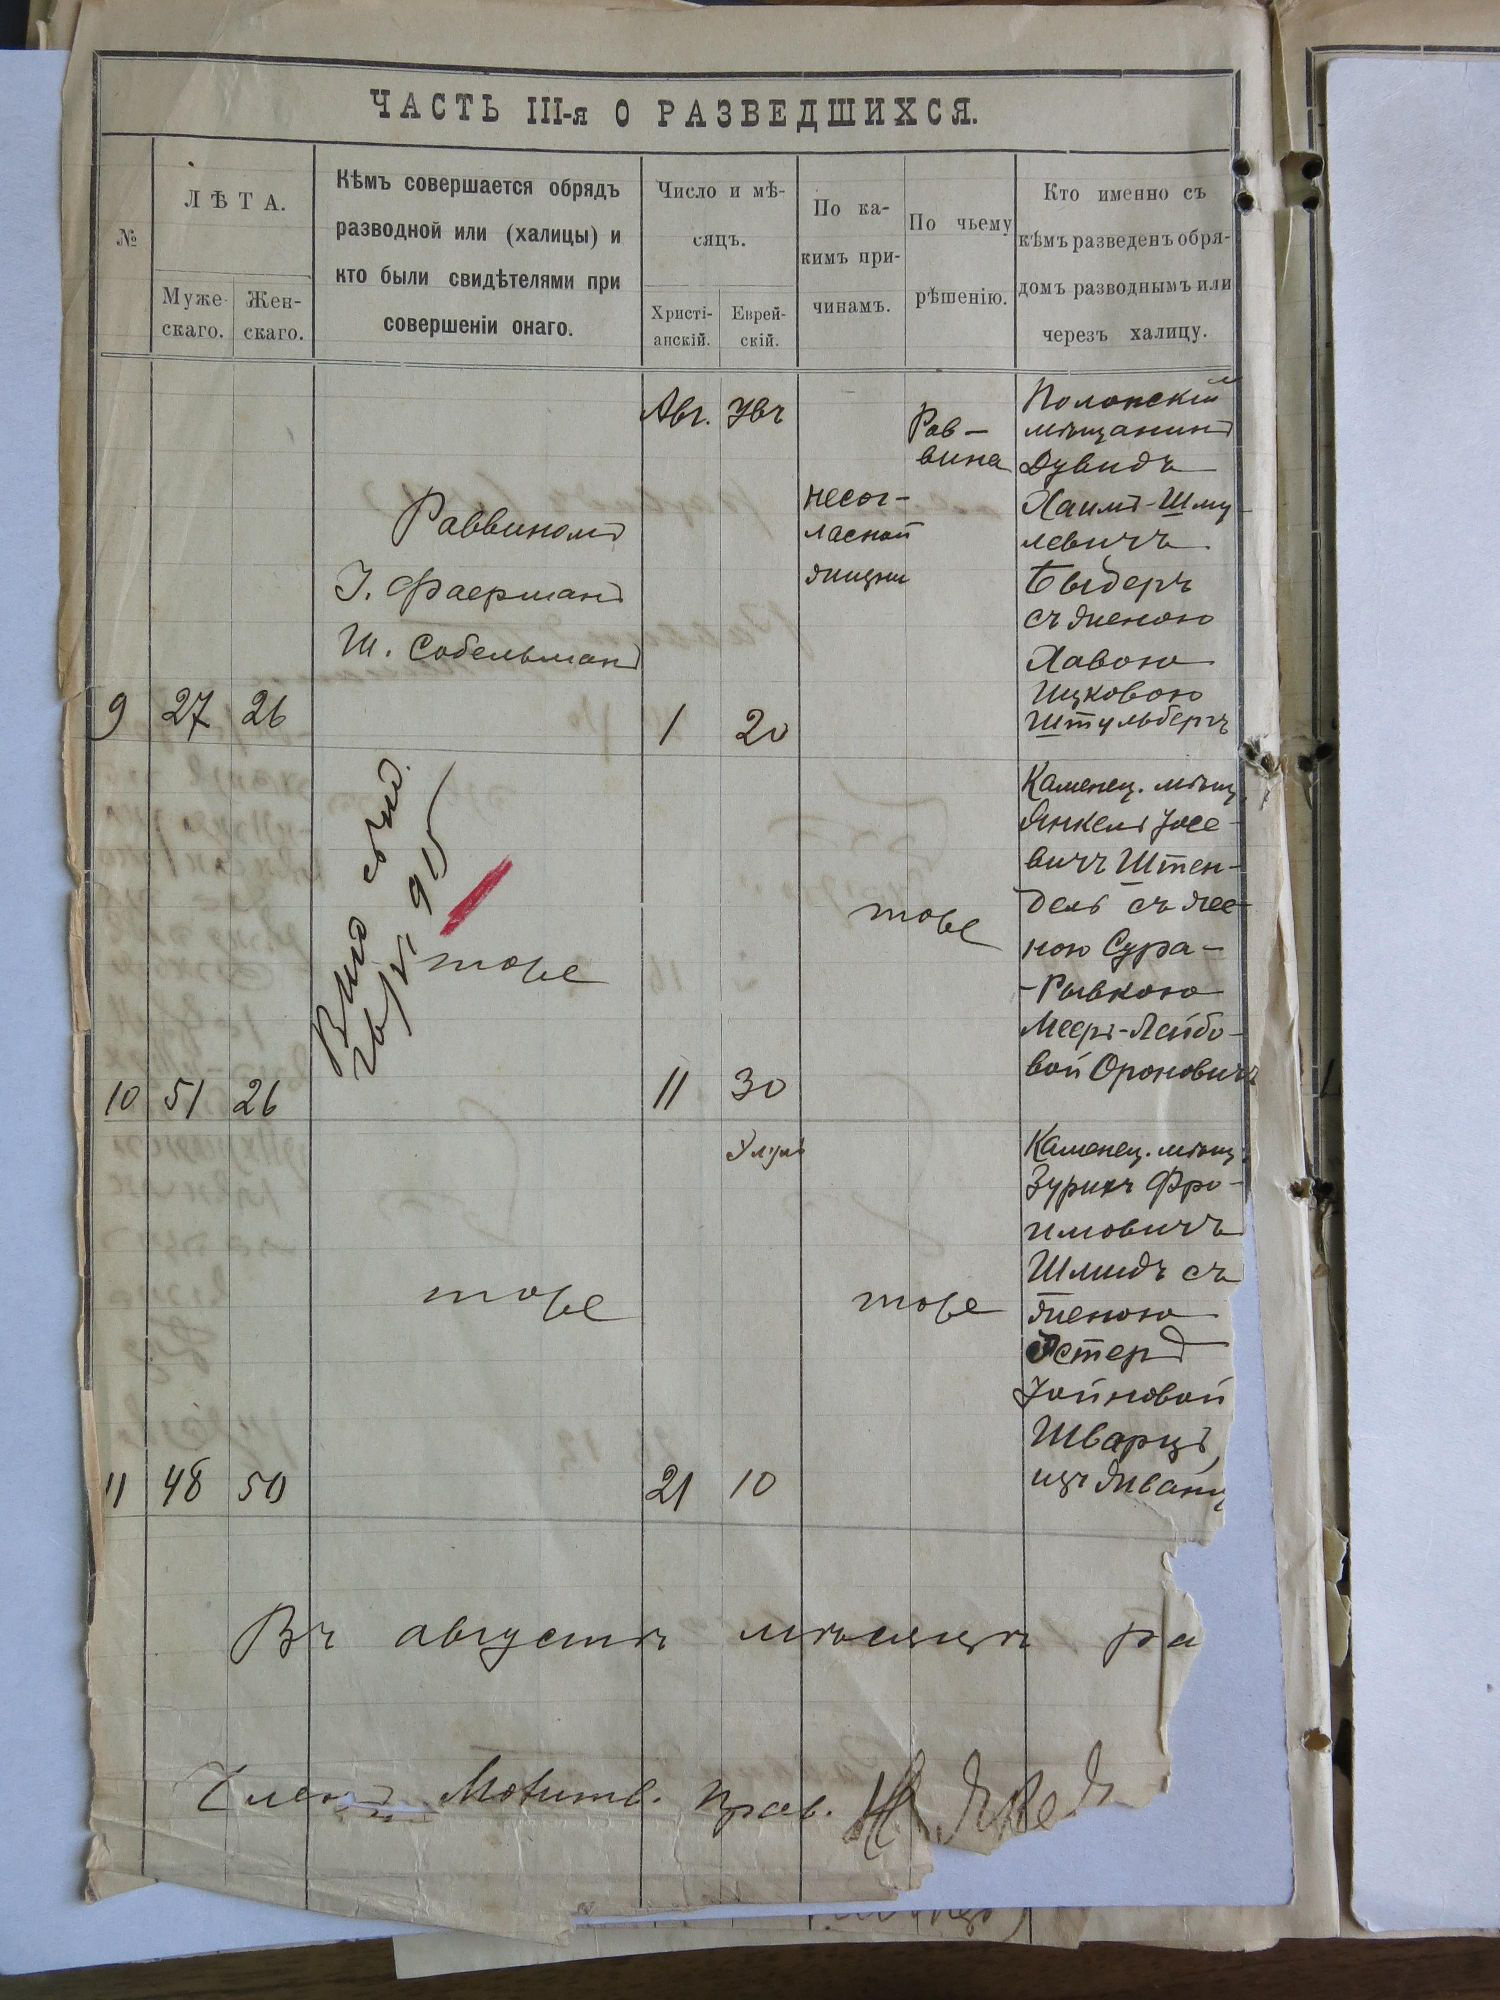 ЧАСТЬ III-я О РАЗВЕДШИХСЯ.
№
ЛѢТА.
Муже-
скаго.
Жен-
скаго.
Кѣмъ совершается обрядъ
разводной или (халицы) и
кто были свидѣтелями при
совершеніи онаго.
Число и мѣ-
сяцъ.
Христі-
анскій.
Еврей-
скій.
По ка-
кимъ при-
чинамъ.
По чьему
рѣшенію.
Кто именно съ
кѣмъ разведенъ обря-
домъ разводнымъ или
черезъ халицу.
9
27
26
Раввиномъ
І. Фаерманъ
Ш. Собельманъ
Авг.
1
20
несог-
ласной
жизни
Рав-
вина
мѣщанинъ
Дувидъ
Хаимъ-Шму
левичъ
съ женою
Хавою
Ицковою
Штульбергъ
10
51
26
тоже
11
30
тоже
Каменец. мѣщ.
Янкель Іосе-
вичъ Штен-
дель съ же-
ною Сура-
-Рывкою
Мееръ-Лейбо-
вой Ороновичъ
11
48
50
тоже
21
Элулъ
10
тоже
Каменец. мѣщ.
Фро-
имовичъ
Шмидъ съ
женою
Эстеръ
Іойновой
Шварцъ,
изъ Жванц
Въ августѣ мѣсяцѣ ра
Членъ Молитв. Прав.